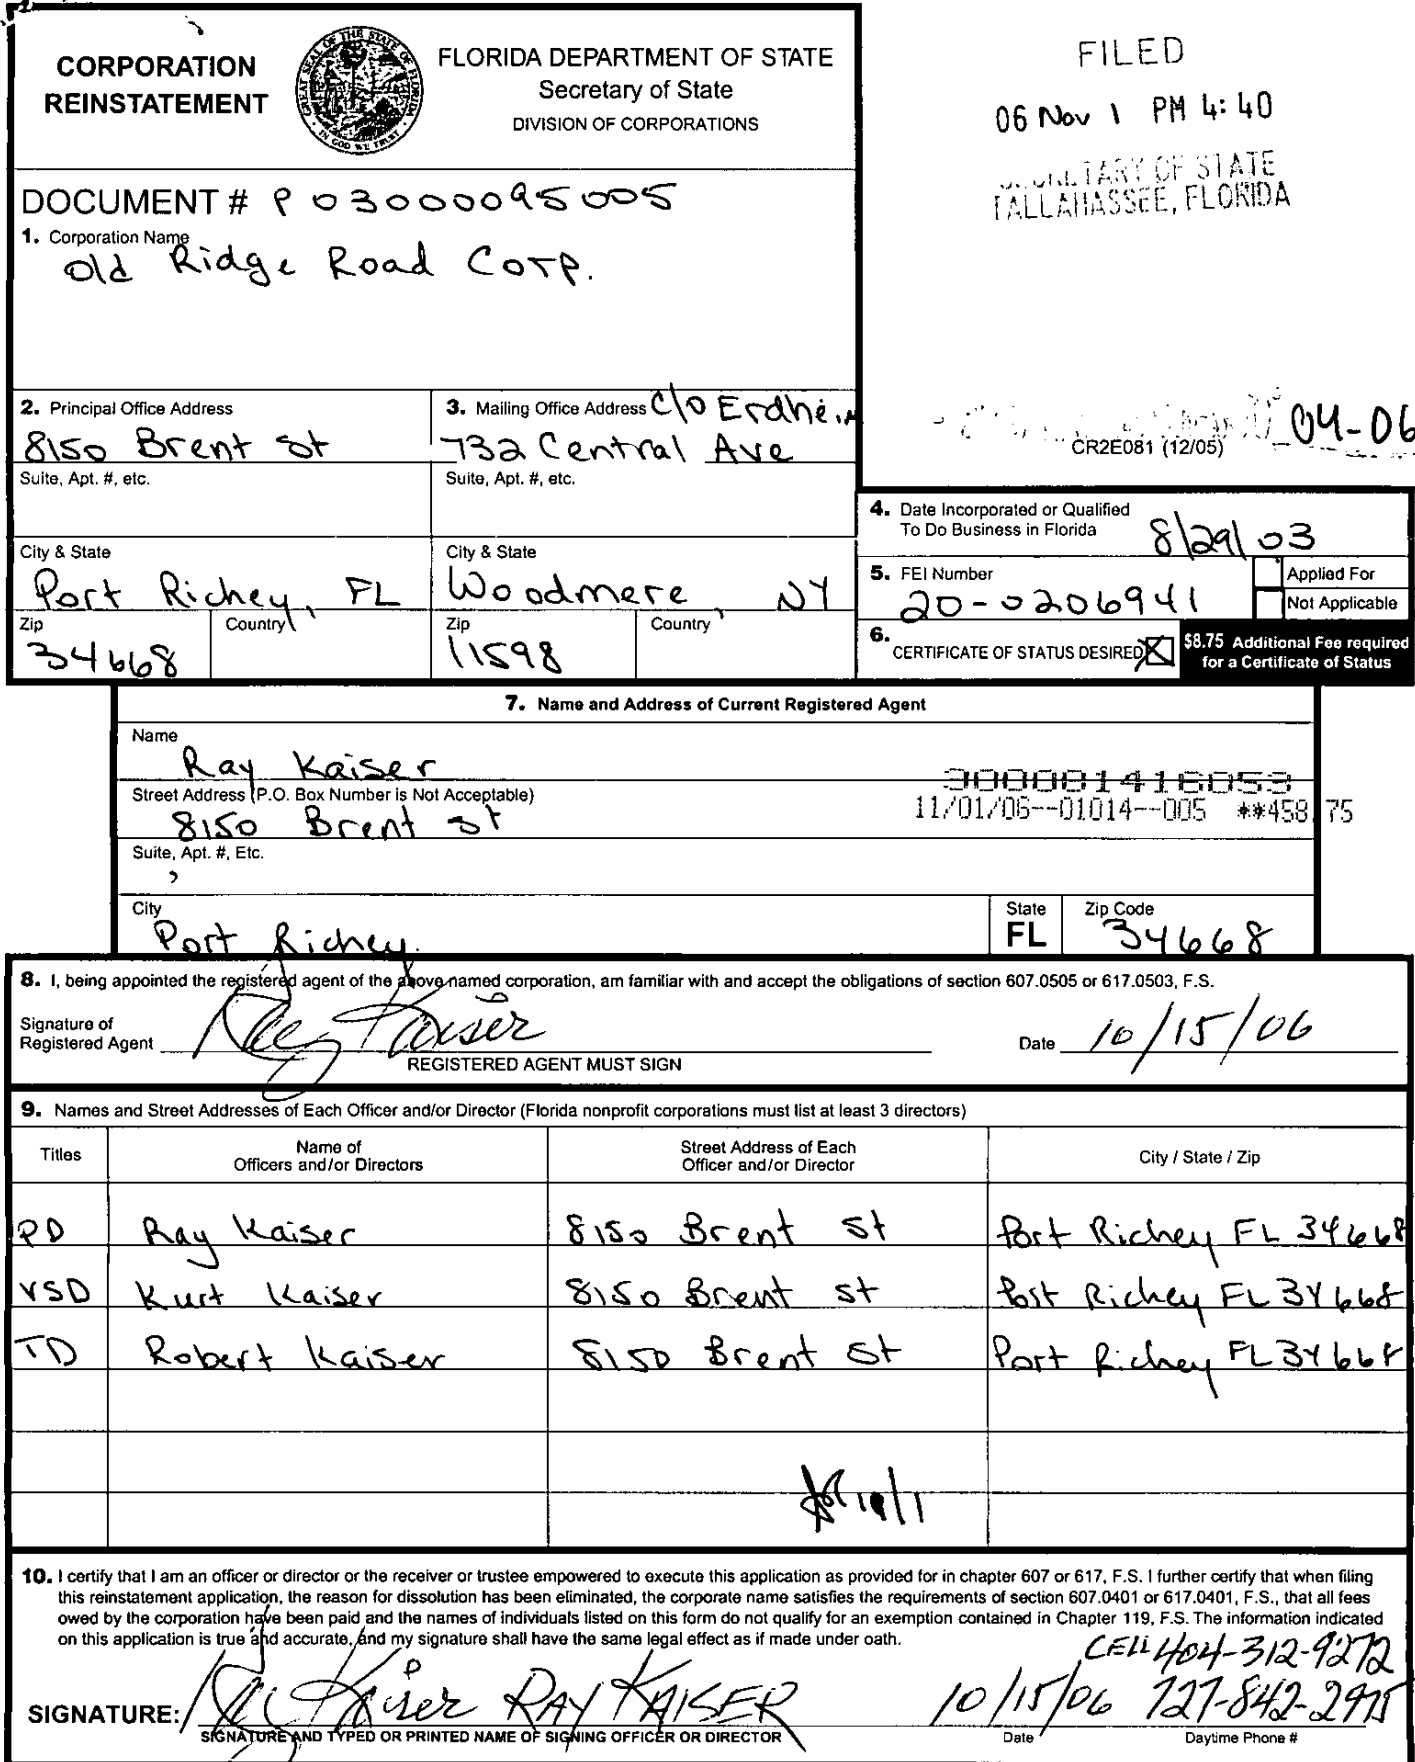 CORPORATION
REINSTATEMENT
GREAT SEAL OF THE STATE OF FLORIDA
IN GOD WE TRUST
FLORIDA DEPARTMENT OF STATE
Secretary of State
DIVISION OF CORPORATIONS
FILED
06 Nov 1 PM 4:40
SECRETARY OF STATE
TALLAHASSEE, FLORIDA
DOCUMENT # P03000095005
1. Corporation Name
Old Ridge Road Corp.
2. Principal Office Address
8150 Brent St
Suite, Apt. #, etc.
City & State
Port Richey, FL
Zip
Country
34668
3. Mailing Office Address C/O Erdheim
732 Central Ave
Suite, Apt. #, etc.
City & State
Woodmere, NY
Zip
Country
11598
04-06
CR2E081 (12/05)
4. Date Incorporated or Qualified
To Do Business in Florida
8/29/03
5. FEI Number
20-0206941
Applied For
Not Applicable
6. CERTIFICATE OF STATUS DESIRED X
$8.75 Additional Fee required
for a Certificate of Status
7. Name and Address of Current Registered Agent
Name
Ray Kaiser
300081416053
Street Address (P.O. Box Number is Not Acceptable)
11/01/06--01014--005 **458.75
8150 Brent St
Suite, Apt. #, Etc.
City
Port Richey
State
FL
Zip Code
34668
8. I, being appointed the registered agent of the above named corporation, am familiar with and accept the obligations of section 607.0505 or 617.0503, F.S.
Signature of
Registered Agent Ray Kaiser
Date 10/15/06
REGISTERED AGENT MUST SIGN
9. Names and Street Addresses of Each Officer and/or Director (Florida nonprofit corporations must list at least 3 directors)
Titles
Name of
Officers and/or Directors
Street Address of Each
Officer and/or Director
City / State / Zip
PD Ray Kaiser 8150 Brent St Port Richey FL 34668
VSD Kurt Kaiser 8150 Brent St Port Richey FL 34668
TD Robert Kaiser 8150 Brent St Port Richey FL 34668
10. I certify that I am an officer or director or the receiver or trustee empowered to execute this application as provided for in chapter 607 or 617, F.S. I further certify that when filing
this reinstatement application, the reason for dissolution has been eliminated, the corporate name satisfies the requirements of section 607.0401 or 617.0401, F.S., that all fees
owed by the corporation have been paid and the names of individuals listed on this form do not qualify for an exemption contained in Chapter 119, F.S. The information indicated
on this application is true and accurate, and my signature shall have the same legal effect as if made under oath.
CELL 404-312-9272
SIGNATURE: Ray Kaiser RAY KAISER 10/15/06 727-842-2975
SIGNATURE AND TYPED OR PRINTED NAME OF SIGNING OFFICER OR DIRECTOR
Date
Daytime Phone #